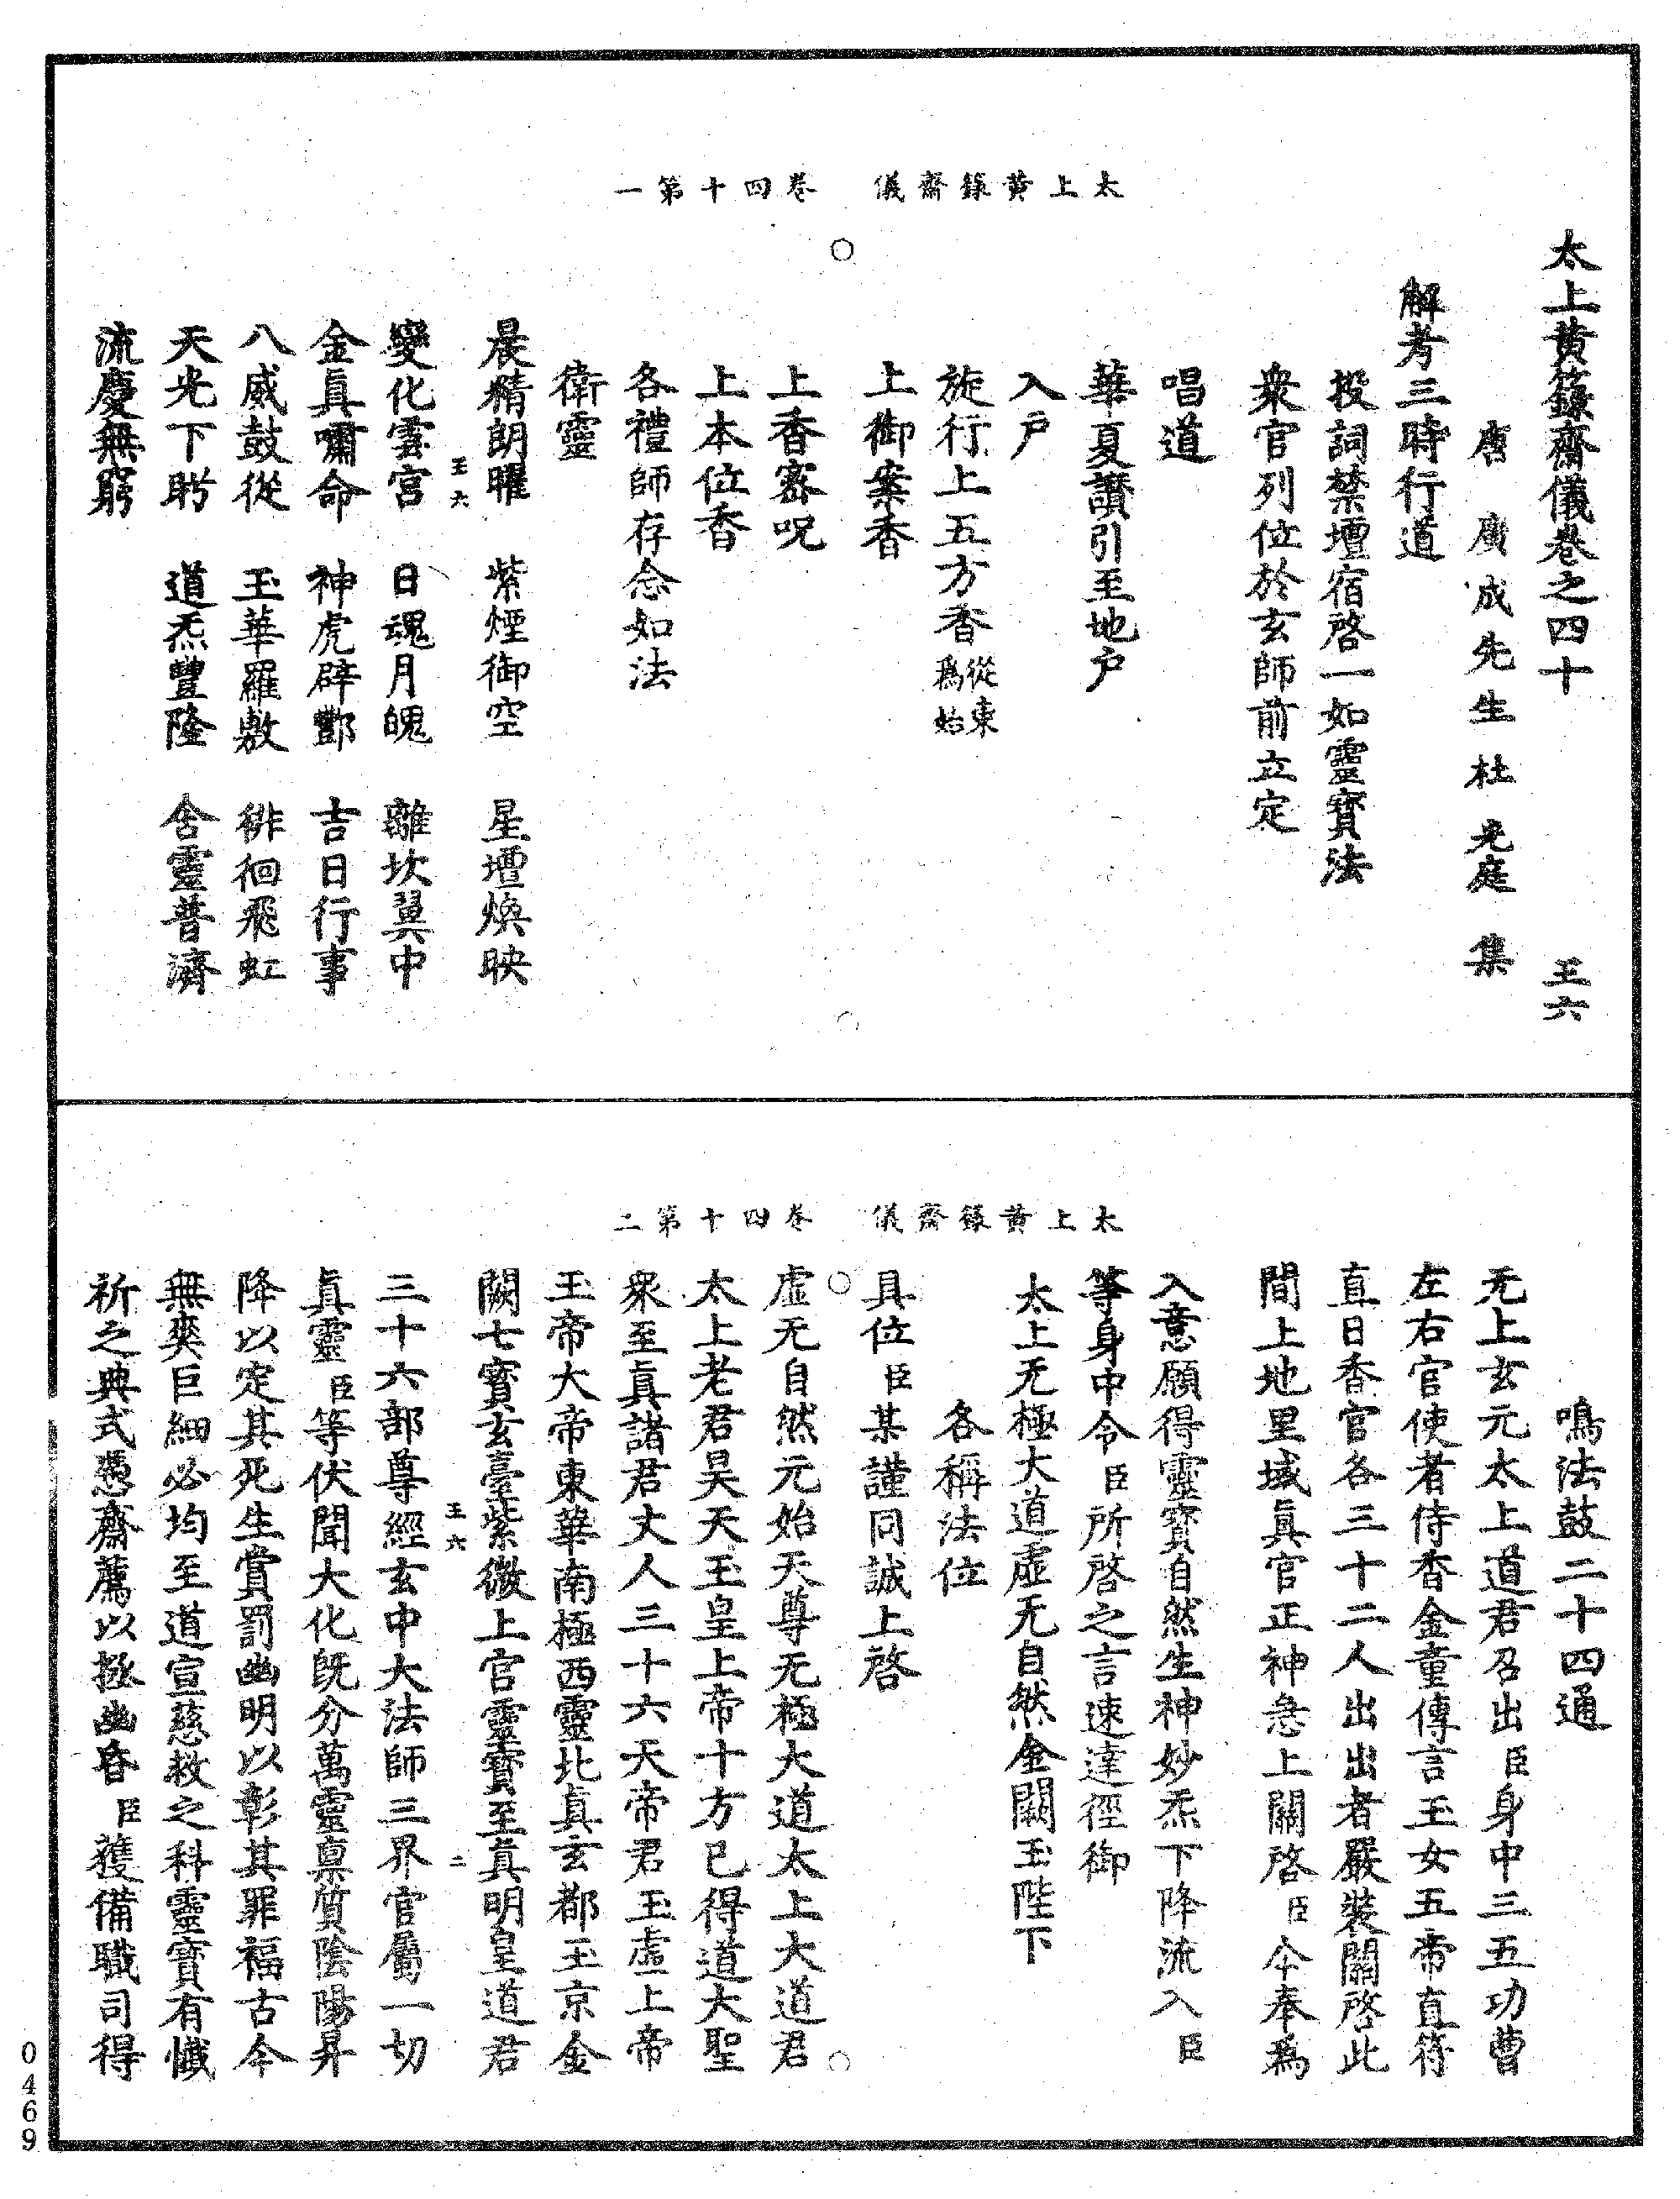 太上黃籙齋儀　卷四十第一
太上黃籙齋儀卷之四十　王六
唐廣成先生杜光庭集
解考三時行道
投詞禁壇宿啓一如靈寶法
衆官列位於玄師前立定
唱道
華夏讚引至地户
入户
旋行上五方香從東爲始
上御案香
上香密呪
上本位香
各禮師存念如法
衛靈
晨精朗曜　紫煙御空　星壇煥映
王六
變化雲宮　日魂月魄　離坎翼中
金眞嘯命　神虎辟酆　吉日行事
八威鼓從　玉華羅敷　徘徊飛虹
天光下眄　道炁豐隆　含靈普濟
流慶無窮
太上黃籙齋儀　卷四十第二
鳴法鼓二十四通
无上玄元太上道君召出臣身中三五功曹
左右官使者侍香金童傳言玉女五帝直符
直日香官各三十二人出出者嚴裝關啓此
間上地里域眞官正神急上關啓臣今奉爲
入意願得靈寶自然生神妙炁下降流入臣
等身中令臣所啓之言速達徑御
太上无極大道虛无自然金闕玉陛下
各稱法位
具位臣某謹同誠上啓
虛无自然元始天尊无極大道太上大道君
太上老君昊天玉皇上帝十方已得道大聖
衆至眞諸君丈人三十六天帝君玉虛上帝
玉帝大帝東華南極西靈北眞玄都玉京金
闕七寶玄臺紫微上宮靈寶至眞明皇道君
王六　二
三十六部尊經玄中大法師三界官屬一切
眞靈臣等伏聞大化旣分萬靈稟質陰陽昇
降以定其死生賞罰幽明以彰其罪福古今
無爽巨細必均至道宣慈救之科靈寶有懺
祈之典式憑齋薦以拯幽昏臣獲備職司得
0469